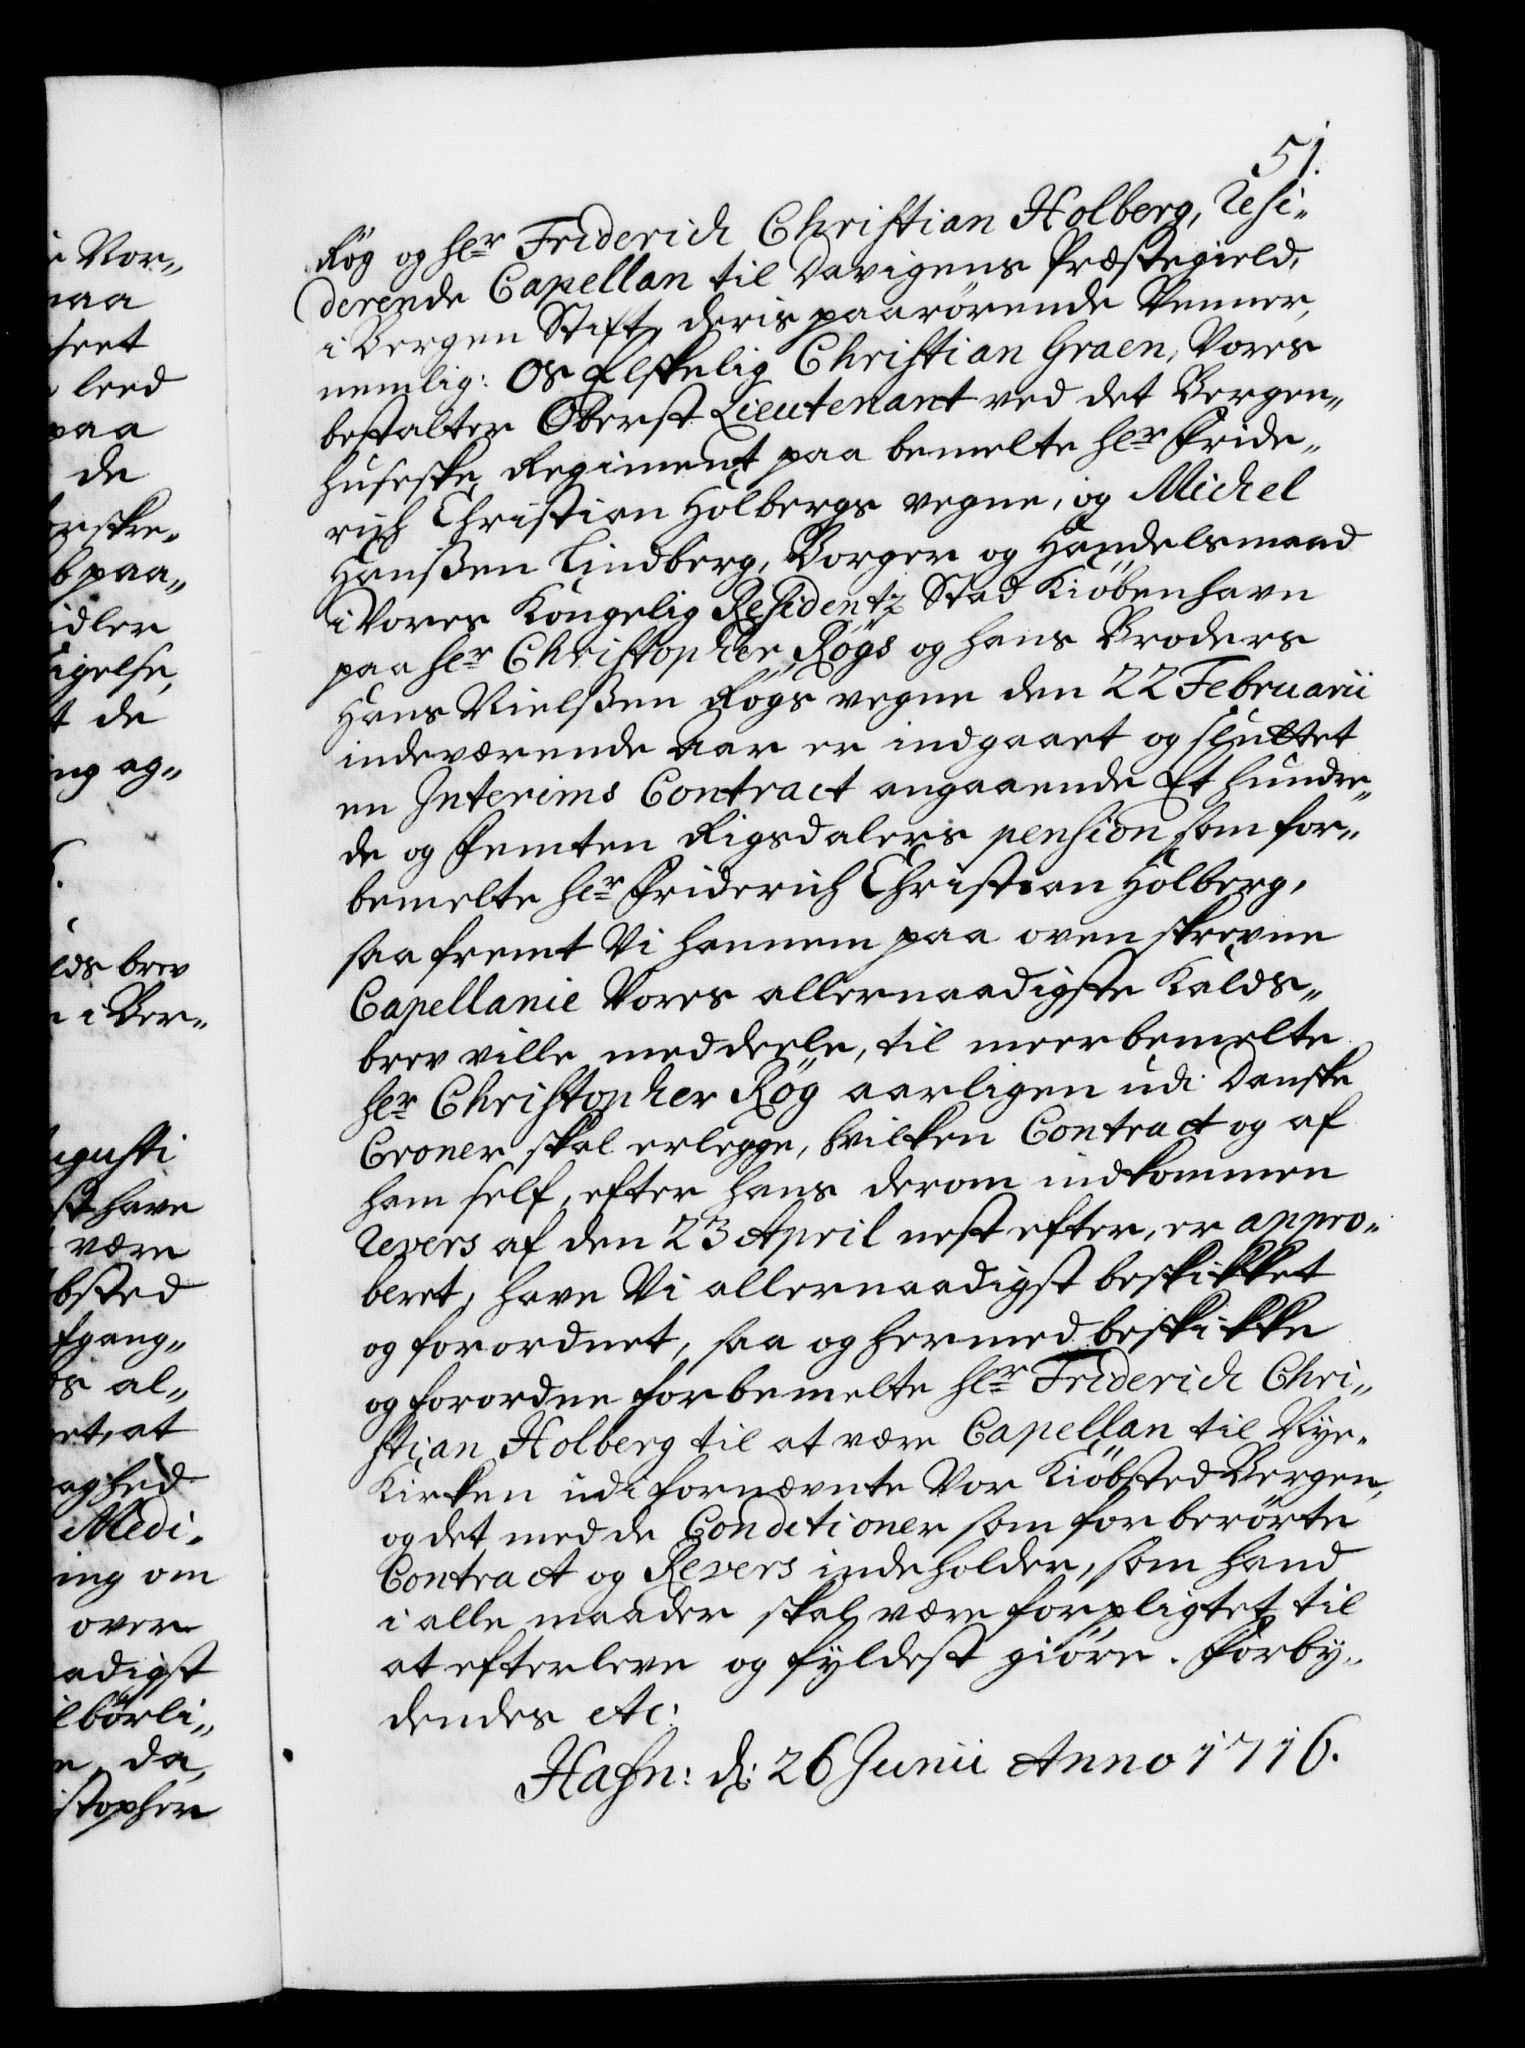 51.
Røg og hr Friderich Christian Holberg, Resi-
derende Capellan til Davigens Præstegield,
i Bergen Stift, deris paarörende Venner,
nemlig: Os Elskelig Christian Graen, Vores
bestalter Oberst Lieutenant ved det Bergen-
huseske Regiment paa bemelte hr Fride-
rich Christian Holbergs vegne, og Michel
Hanßen Lindberg, Borger og Handelsmand
i Vores Kongelig Residentz Stad Kiöbenhavn
paa hr Christopher Røgs og hans Broders
Hans Nielßen Røgs vegne den 22 Februarii
indeværende Aar er indgaaet og sluttet
en Interims Contract angaaende Et hundre-
de og Femten Rigsdalers pension som for-
bemelte hr Friderich Christian Holberg,
saafremt Vi hannem paa ovenskrevne
Capellanie Vores allernaadigste Kalds-
brev ville meddeele, til meerbemelte
hr Christopher Røg aarligen udi Danske
Croner skal erlegge, hvilken Contract og af
ham self, efter hans derom indkommen
Revers af den 23 April nest efter, er appro-
beret; have Vi allernaadigst beskikket
og forordnet, saa og hermed beskikke
og forordne forbemelte hr Friderich Chri-
stian Holberg til at være Capellan til Nye-
Kirken udi fornævnte Vor Kiöbsted Bergen,
og det med de Conditioner som forberörte
Contract og Revers indeholder, som hand
i alle maader skal være forpligtet til
at efterleve og fyldest giöre. Forby-
dendes etc:
Hafn: d: 26 Junii Anno 1716.
e Vor-
naa
seet
leed
paa
de
orskre-
b paa-
idler
igelse,
t de
ing ag-
lds brev
n i Ber-
ugusti
st have
være
bsted
fgang-
s al-
et, at
aghed
Medi-
ing om
over
adigst
lbörli-
e, da,
istopher